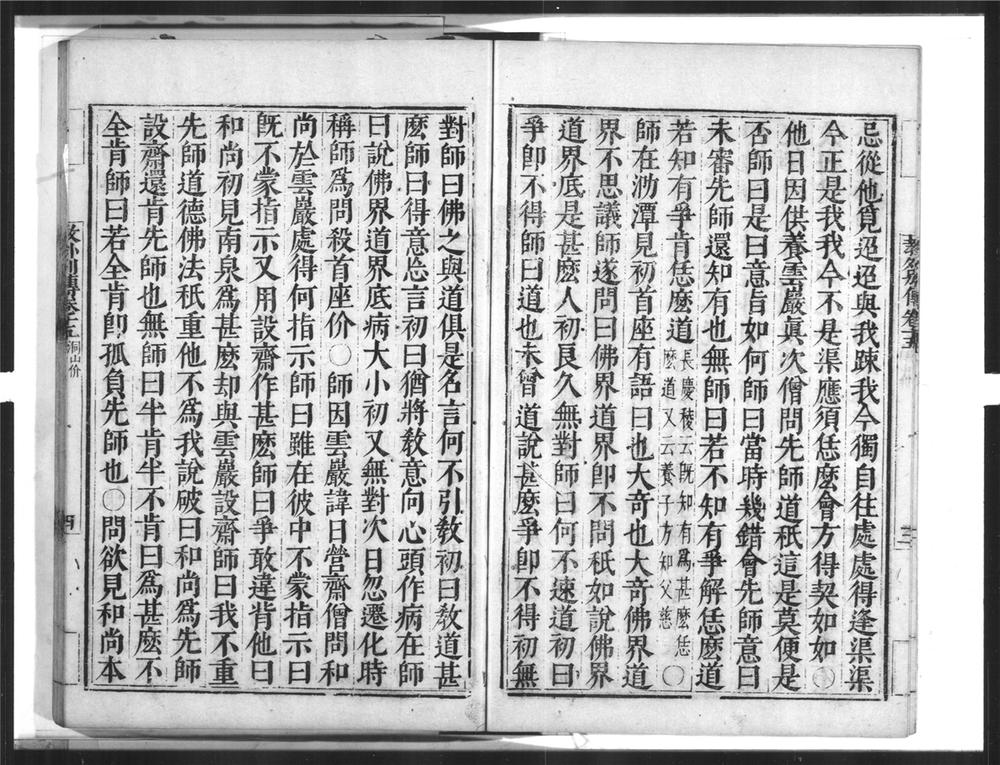 忌從他覓迢迢與我踈我今獨自往處處得逢渠渠
今正是我我今不是渠應須恁麽會方得契如如〇
他日因供養雲巖眞次僧問先師道秖這是莫便是
否師曰是曰意旨如何師曰當時幾錯會先師意曰
未審先師還知有也無師曰若不知有爭解恁麽道
若知有爭肯恁麽道長慶稜云旣知有爲甚麽恁麽道又云養子方知父慈〇
師在泐潭見初首座有語曰也大奇也大奇佛界道
界不思議師遂問曰佛界道界卽不問秖如說佛界
道界底是甚麽人初良久無對師曰何不速道初曰
爭卽不得師曰道也未曾道說甚麽爭卽不得初無
教外別傳卷五
三
對師曰佛之與道俱是名言何不引敎初曰敎道甚
麽師曰得意忘言初曰猶將敎意向心頭作病在師
曰說佛界道界底病大小初又無對次日忽遷化時
稱師爲問殺首座价〇師因雲巖諱日營齋僧問和
尚於雲巖處得何指示師曰雖在彼中不蒙指示曰
旣不蒙指示又用設齋作甚麽師曰爭敢違背他曰
和尚初見南泉爲甚麽却與雲巖設齋師曰我不重
先師道德佛法秖重他不爲我說破曰和尚爲先師
設齋還肯先師也無師曰半肯半不肯曰爲甚麽不
全肯師曰若全肯卽孤負先師也〇問欲見和尚本
教外別傳卷五
洞山价
四